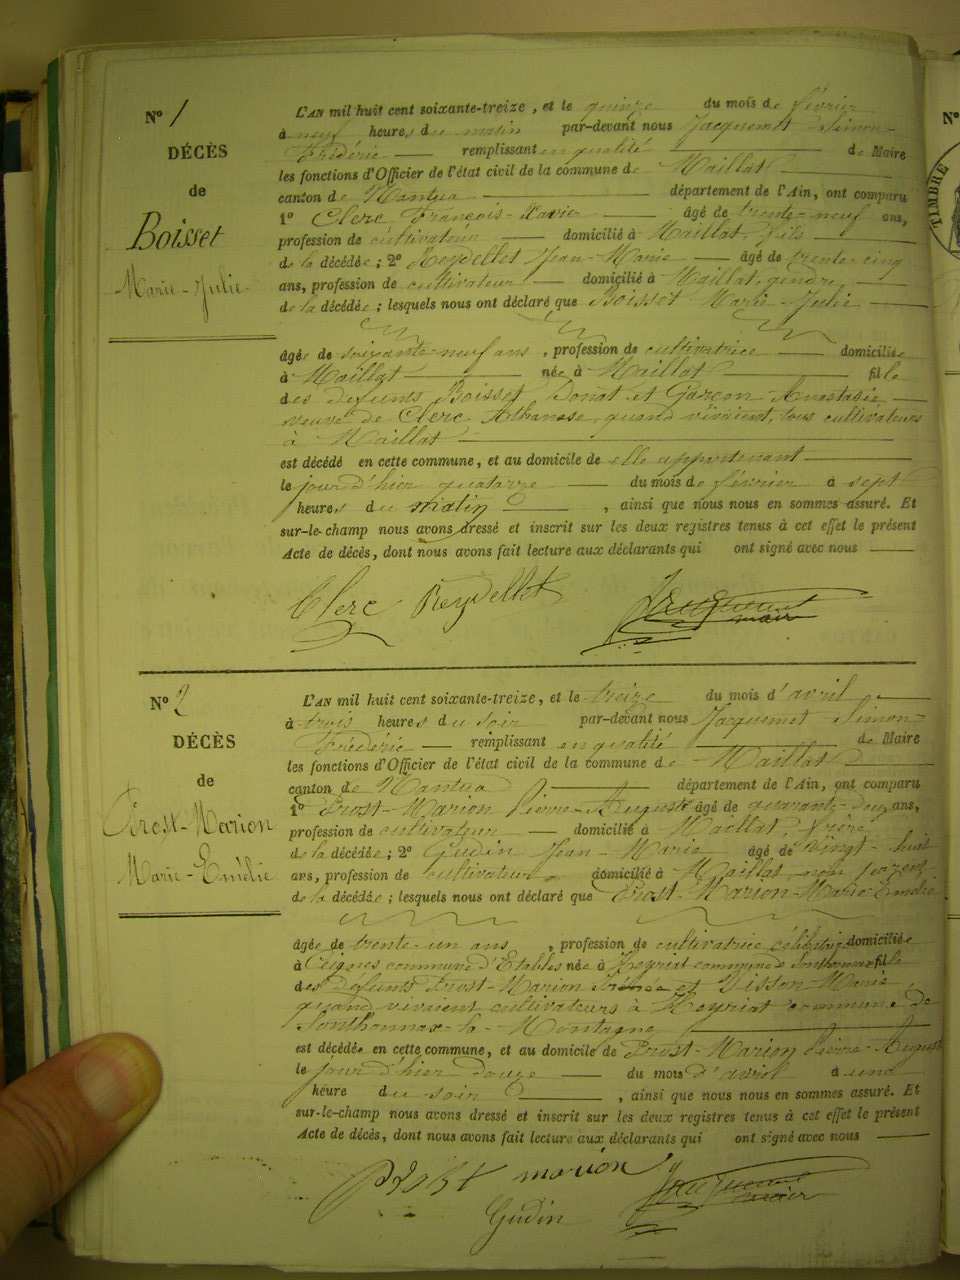 N° 1
DÉCÈS
de
Boisset
Marie-Julie
L'AN mil huit cent soixante-treize, et le quinze du mois de février
à neuf heures du matin par-devant nous Jacquemet Simon-
Frédéric remplissant en qualité de Maire
les fonctions d'Officier de l'état civil de la commune de Maillat
canton de Nantua département de l'Ain, ont comparu
1° Clerc François-Xavier âgé de trente-neuf ans,
profession de cultivateur domicilié à Maillat, fils
de la décédée ; 2° Reydellet Jean-Marie âgé de trente-cinq
ans, profession de cultivateur domicilié à Maillat, gendre
de la décédée ; lesquels nous ont déclaré que Boisset Marie-Julie
âgée de soixante-neuf ans, profession de cultivatrice domiciliée
à Maillat née à Maillat fille
des défunts Boisset Donat et Garçon Anastasie
veuve de Clerc Athanase, quand vivaient, tous cultivateurs
à Maillat
est décédé en cette commune, et au domicile de elle appartenant
le jour d'hier quatorze du mois de février à sept
heures du matin, ainsi que nous nous en sommes assuré. Et
sur-le-champ nous avons dressé et inscrit sur les deux registres tenus à cet effet le présent
Acte de décès, dont nous avons fait lecture aux déclarants qui ont signé avec nous
Clerc Reydellet Jacquemet
maire
N° 2
DÉCÈS
de
Prost-Marion
Marie-Emélie
L'AN mil huit cent soixante-treize, et le treize du mois d'avril
à trois heures du soir par-devant nous Jacquemet Simon-
Frédéric remplissant en qualité de Maire
les fonctions d'Officier de l'état civil de la commune de Maillat
canton de Nantua département de l'Ain, ont comparu
1° Prost-Marion Pierre-Auguste âgé de quarante-deux ans,
profession de cultivateur domicilié à Maillat, frère
de la décédée ; 2° Gudin Jean-Marie âgé de vingt-huit
ans, profession de cultivateur domicilié à Maillat, non parent
de la décédée ; lesquels nous ont déclaré que Prost-Marion-Marie-Emélie
âgée de trente-un ans, profession de cultivatrice célibataire domiciliée
à Ceignes commune d'Etables née à Heyriat commune de Sonthonnax fille
des défunts Prost-Marion et Visson Marie,
quand vivaient cultivateurs à Heyriat commune de
Sonthonnax-la-Montagne
est décédée en cette commune, et au domicile de Prost-Marion Pierre-Auguste
le jour d'hier douze du mois d'avril à une
heure du soir, ainsi que nous nous en sommes assuré. Et
sur-le-champ nous avons dressé et inscrit sur les deux registres tenus à cet effet le présent
Acte de décès, dont nous avons fait lecture aux déclarants qui ont signé avec nous
prost marion Jacquemet
maire
Gudin
N°
TIMBRE